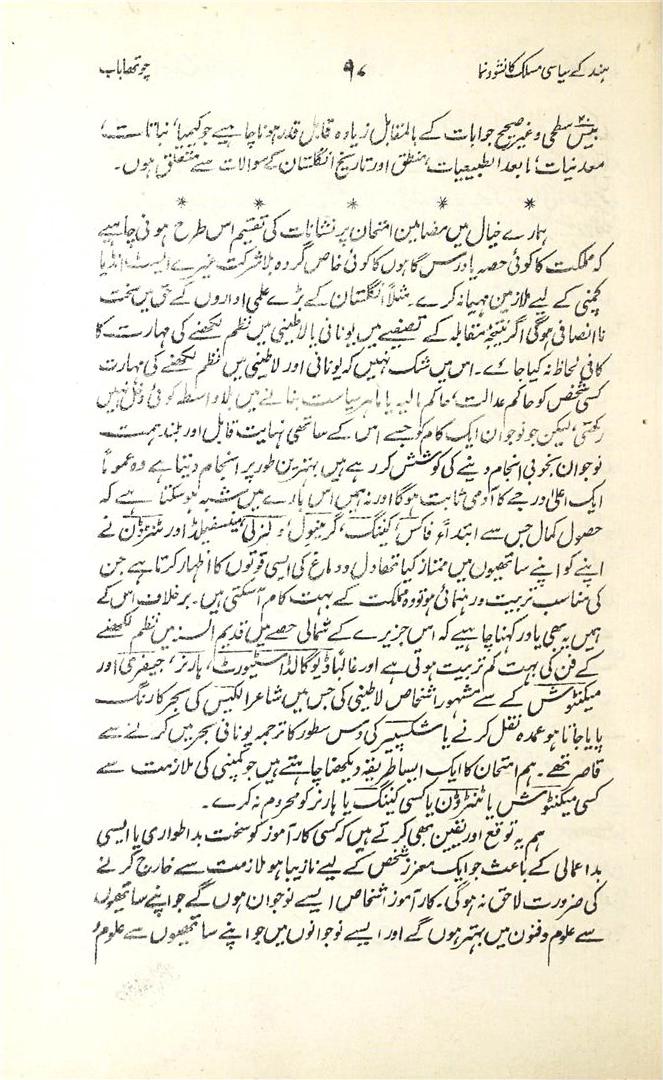 ہند کے سیاسی مسلک کا نشو و نما ۹۷ چوتھا باب
بیس سطحی و غیر صحیح جوابات کے بالمقابل زیادہ قابل قدر ہونا چاہیے جو کیمیا، نباتات،
معدنیات، مابعد الطبیعیات، منطق اور تاریخ انگلستان کے سوالات سے متعلق ہوں۔
* * * * *
ہمارے خیال میں مضامین امتحان پر نشانات کی تقسیم اس طرح ہونی چاہیے
کہ مملکت کا کوئی حصہ یا درس گاہوں کا کوئی خاص گروہ بلا شرکت غیرے ایسٹ انڈیا
کمپنی کے لیے ملازمین مہیا نہ کرے مثلاً انگلستان کے بڑے علمی اداروں کے حق میں سخت
نا انصافی ہوگی اگر نتیجۂ مقابلہ کے تصفیے میں یونانی یا لاطینی میں نظم لکھنے کی مہارت کا
کافی لحاظ نہ کیا جائے۔ اس میں شک نہیں کہ یونانی اور لاطینی میں نظم لکھنے کی مہارت
کسی شخص کو حاکم عدالت، حاکم مالیہ یا ماہر سیاست بنانے میں بلا واسطہ کوئی دخل نہیں
رکھتی، لیکن جو نوجوان ایک کام کو جسے اس کے ساتھی نہایت قابل اور بلند ہمت
نوجوان بخوبی انجام دینے کی کوشش کر رہے ہیں بہترین طور پر انجام دیتا ہے وہ عموماً
ایک اعلیٰ درجے کا آدمی ثابت ہوگا اور نہ ہمیں اس بارے میں شبہ ہو سکتا ہے کہ
حصول کمال جس سے ابتداءً فاکس، کیننگ، گرینول، ولزلی، مینسفیلڈ اور ٹنٹرڈن نے
اپنے کو اپنے ساتھیوں میں ممتاز کیا تھا دل و دماغ کی ایسی قوتوں کا اظہار کرتا ہے جن
کی مناسب تربیت و رہنمائی ہو تو وہ مملکت کے بہت کام آ سکتی ہیں۔ برخلاف اس کے
ہمیں یہ بھی یاد رکھنا چاہیے کہ اس جزیرے کے شمالی حصے میں قدیم السنہ میں نظم لکھنے
کے فن کی بہت کم تربیت ہوتی ہے اور غالباً ڈیوگالڈ اسٹیورٹ، ہارنر، جیفری اور
میکنٹوش کے سے مشہور اشخاص لاطینی کی جس میں شاعر الکیس کی بحر کا رنگ
پایا جاتا ہو عمدہ نقل کرنے یا شکسپیر کی دس سطور کا ترجمہ یونانی بحر میں کرنے سے
قاصر تھے۔ ہم امتحان کا ایک ایسا طریقہ دیکھنا چاہتے ہیں جو کمپنی کی ملازمت سے
کسی میکنٹوش یا ٹنٹرڈن یا کسی کیننگ یا ہارنر کو محروم نہ کرے۔
ہم یہ توقع اور یقین بھی کرتے ہیں کہ کسی کارآموز کو سخت بد اطواری یا ایسی
بد اعمالی کے باعث جو ایک معزز شخص کے لیے نازیبا ہو ملازمت سے خارج کرنے
کی ضرورت لاحق نہ ہوگی۔ کارآموز اشخاص ایسے نوجوان ہوں گے جو اپنے ساتھیوں
سے علوم و فنون میں بہتر ہوں گے اور ایسے نوجوانوں میں جو اپنے ساتھیوں سے علوم و